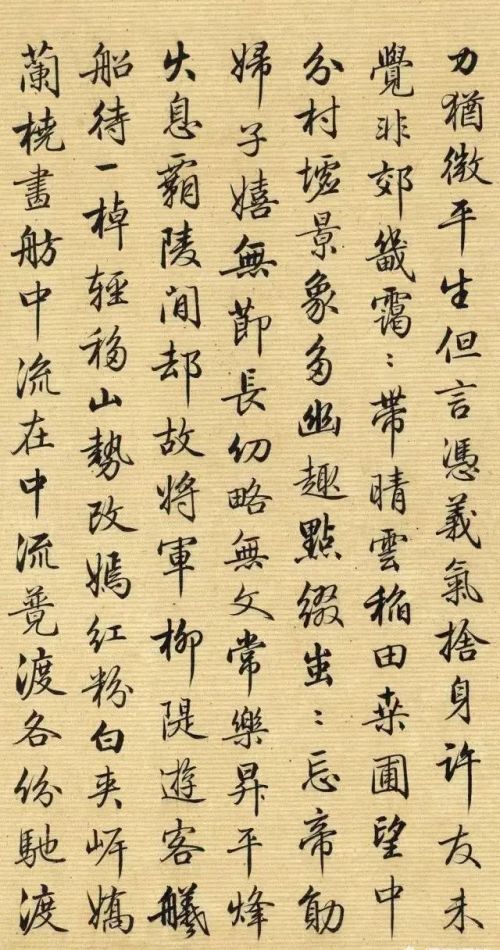 力猶微平生但言憑義氣捨身許友未
覺非郊畿靄：帶晴雲稻田桒圃望中
分村墟景象多幽趣點綴蚩：忘帝勛
婦子嬉無節長幼略無文常樂昇平烽
火息霸陵间却故將軍柳隄遊客艤
船待一棹輕移山勢改嫣紅粉白夾岍嬌
蘭橈畫舫中流在中流竟渡各份馳渡